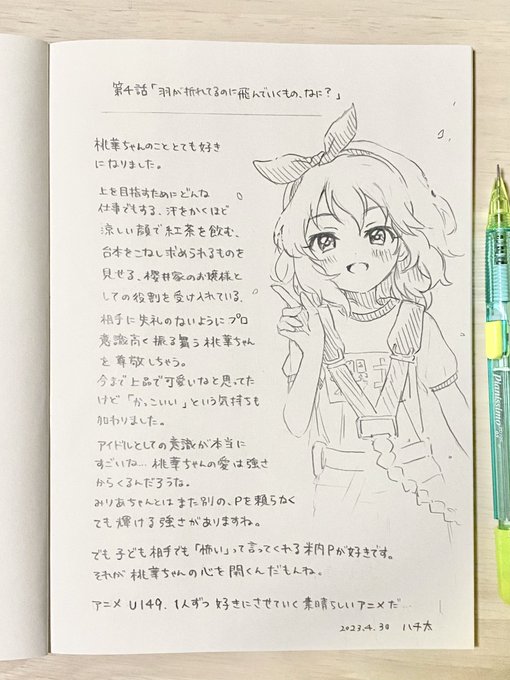 第4話「羽が折れてるのに飛んでいくもの、なに？」
桃華ちゃんのこととても好き
になりました。
上を目指すためにどんな
仕事でもする、汗をかくほど
涼しい顔で紅茶を飲む、
台本をこなし求められるものを
見せる、櫻井家のお嬢様と
しての役割を受け入れている、
相手に失礼のないようにプロ
意識高く振る舞う桃華ちゃん
を尊敬しちゃう。
今まで上品で可愛いなと思ってた
けど「かっこいい」という気持ちも
加わりました。
アイドルとしての意識が本当に
すごいね…桃華ちゃんの愛は強さ
からくるんだろうな。
みりあちゃんとはまた別の、Pを頼らなく
ても輝ける強さがありますね。
でも子ども相手でも「怖い」って言ってくれる米内Pが好きです。
それが桃華ちゃんの心を開くんだもんね。
アニメ U149. 1人ずつ好きにさせていく素晴らしいアニメだ…
2023.4.30 ハチ太
Pianissimo